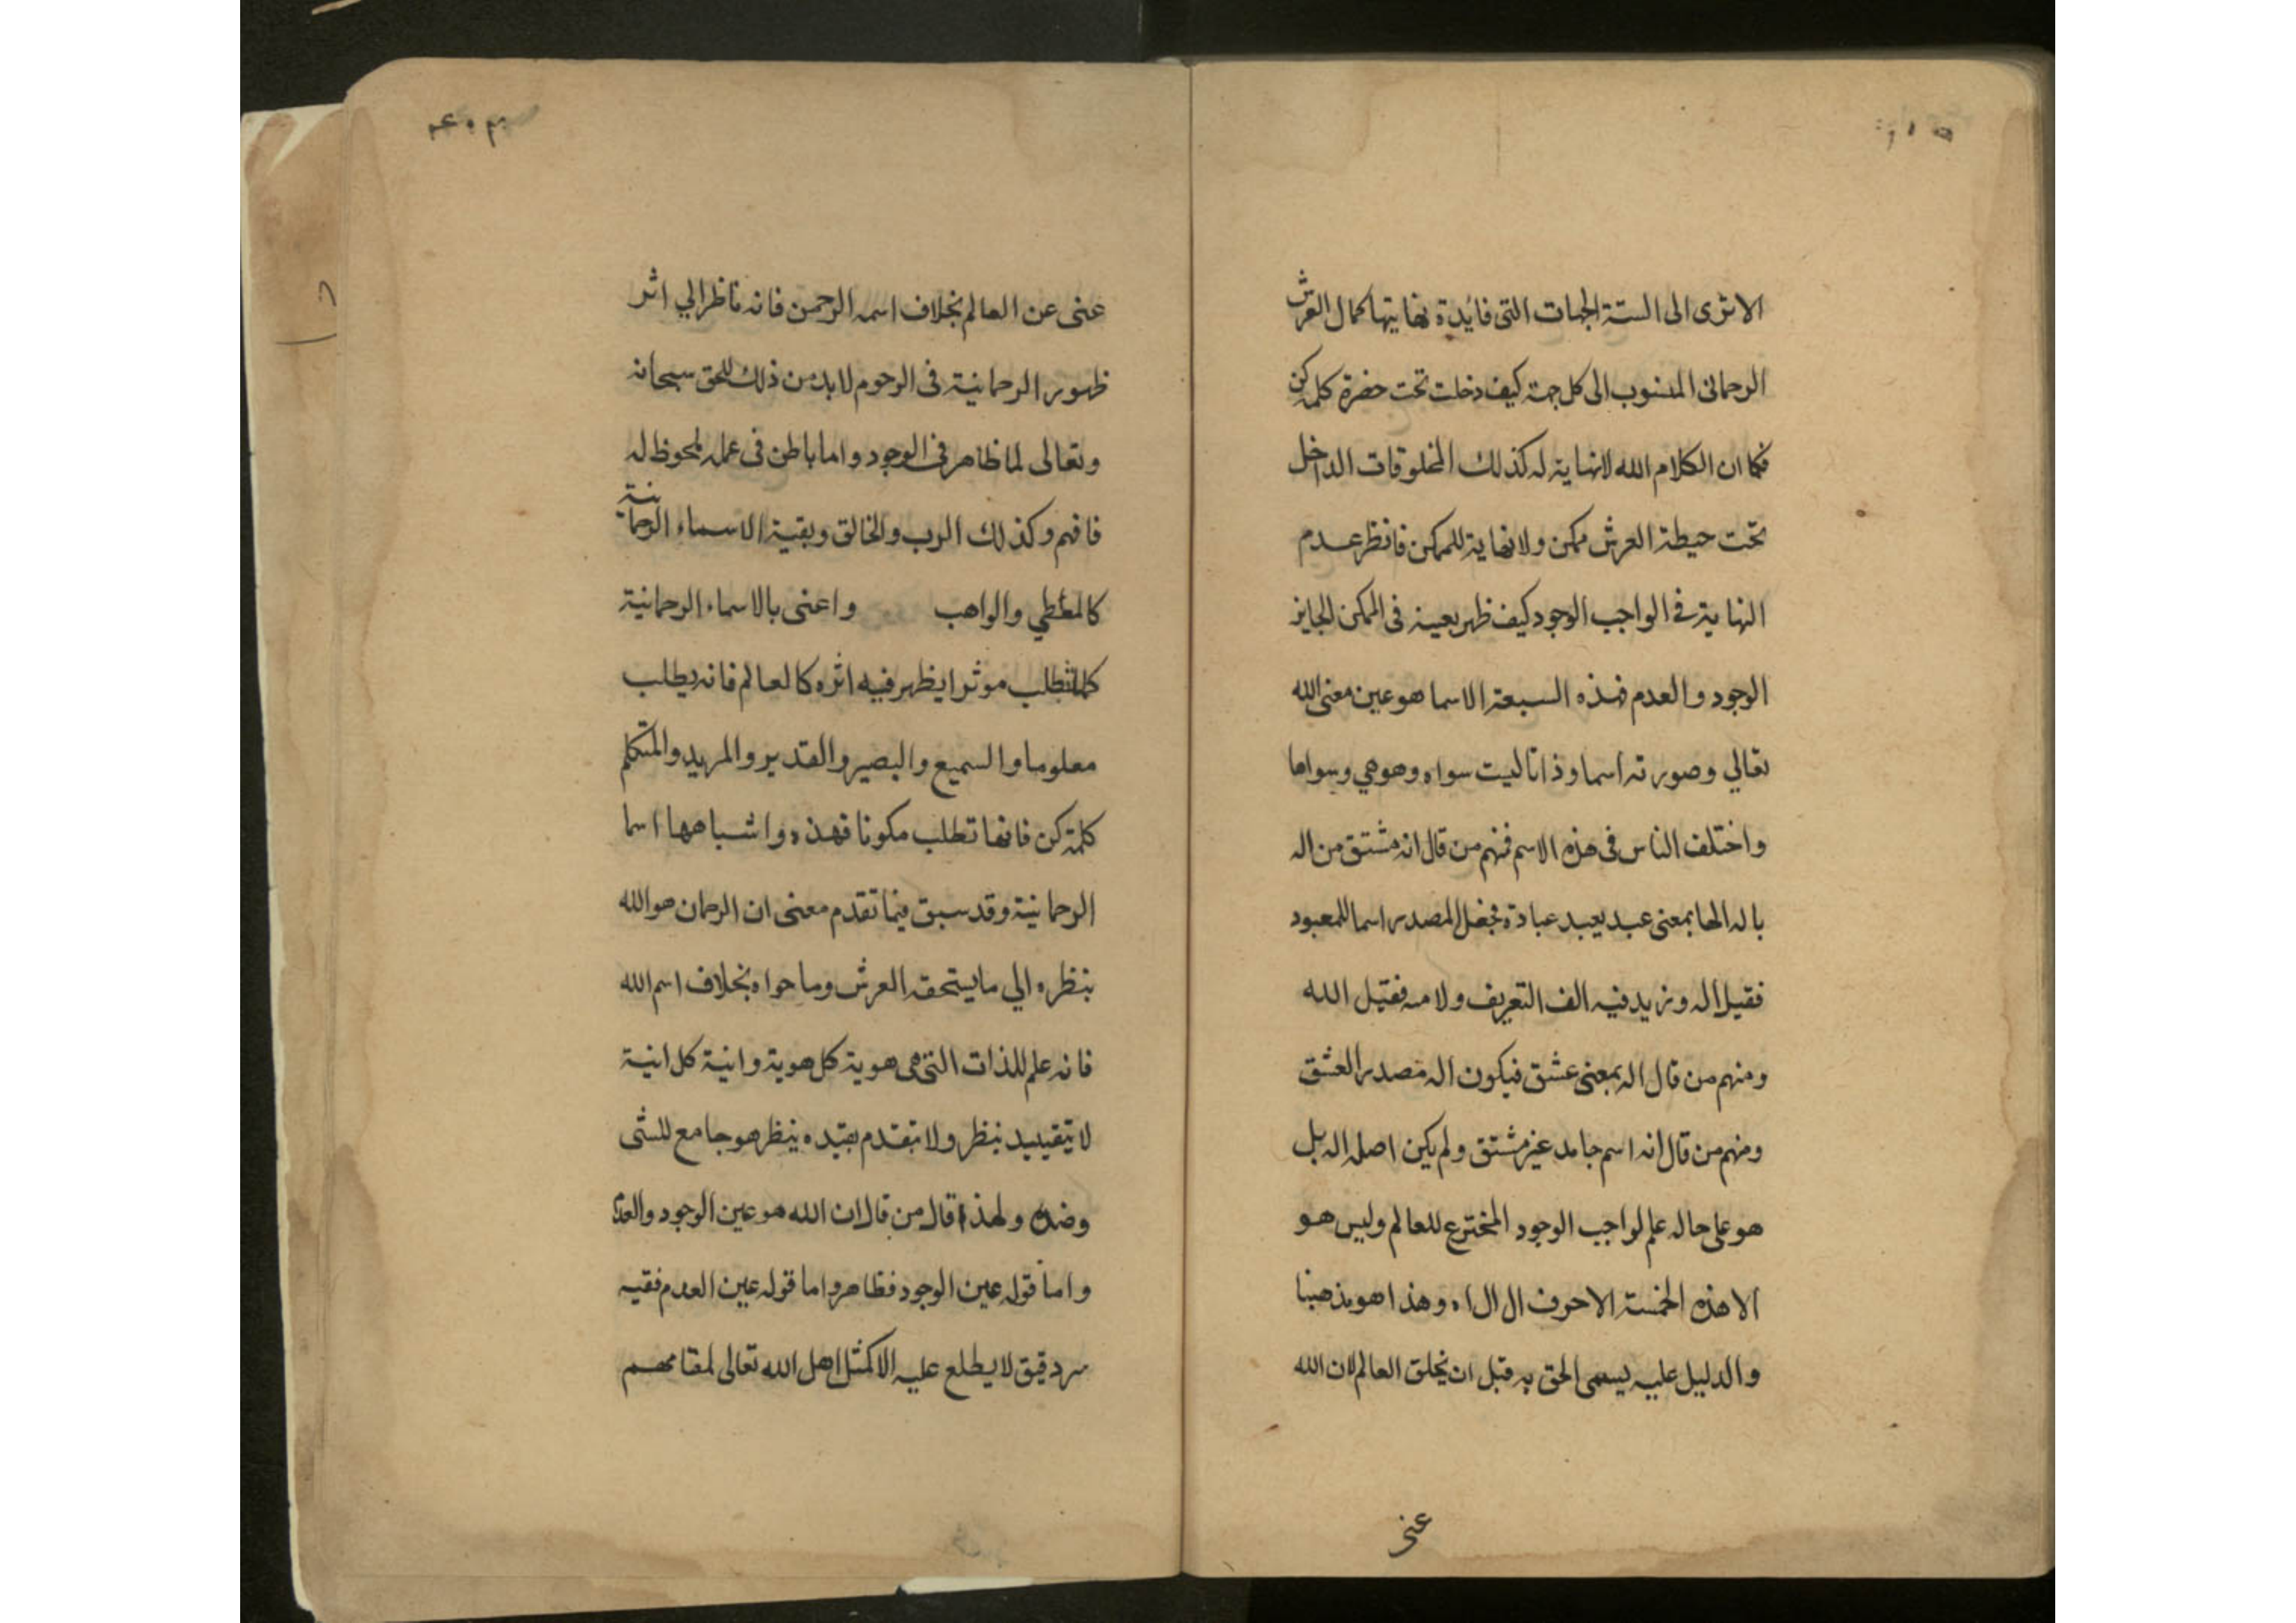 الا ترى الى الستة الجهات التى فائدة نهايتها كمال العرش
الرحمانى المنسوب الى كل جهة كيف دخلت تحت حضرة كلمة كن
فكما ان الكلام الله لانهاية له كذلك المخلوقات الداخل
تحت حيطة العرش ممكن ولا نهاية للممكن فانظر عدم
النهاية فى الواجب الوجود كيف ظهر بعينه فى الممكن الجايز
الوجود والعدم فهذه السبعة الاسما هو عين معنى الله
تعالي وصورته اسما وذاتا ليست سواه وهو هي وسواها
واختلف الناس فى هذه الاسم فمنهم من قال انه مشتق من اله
ياله الها بمعنى عبد يعبد عبادة فجعل المصدر اسما للمعبود
فقيل اله وزيد فيه الف التعريف ولامه فقيل الله
ومنهم من قال اله بمعنى عشق فيكون اله مصدر العشق
ومنهم من قال انه اسم جامد غير مشتق ولم يكن اصله اله بل
هو على حاله علم لواجب الوجود المخترع للعالم وليس هو
الا هذه الخمسة الاحرف ال ال اه وهذا هو مذهبنا
والدليل عليه يسمى الحق به قبل ان يخلق العالم لان الله
غنى
غنى عن العالم بخلاف اسمه الرحمن فانه ناظر الي اثر
ظهور الرحمانية فى الرحوم لابد من ذلك للحق سبحانه
وتعالى لما ظاهر فى الوجود واما باطن فى عمله ملحوظ له
فافهم وكذلك الرب والخالق وبقية الاسماء الرحمانية
كالمعطي والواهب واعنى بالاسماء الرحمانية
كلما تطلب موثرا يظهر فيه اثره كالعالم فانه يطلب
معلوما والسميع والبصير والقدير والمريد والمتكلم
كلمة كن فانها تطلب مكونا فهذه واشباهها اسما
الرحمانية وقد سبق فيما تقدم معنى ان الرحمان هو الله
بنظره الي ما يستحقه العرش وما حواه بخلاف اسم الله
فانه علم للذات التى هى هوية كل هوية وانية كل انية
لا يتقييد بنظر ولا يتقدم بقيده ينظر هو جامع للشى
وضده ولهذا قال من قال ان الله هو عين الوجود والعدم
واما قوله عين الوجود فظاهر واما قوله عين العدم ففيه
سر دقيق لا يطلع عليه الا كمثل اهل الله تعالى لمقامهم